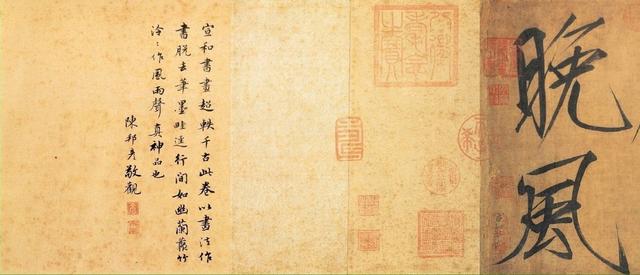 晚風
八徵耄念之寶
宣和書畫超軼千古此卷以書法作
畫脫去筆墨畦逕行間如幽蘭叢竹
泠〻作風雨聲真神品也
陳邦彥敬觀